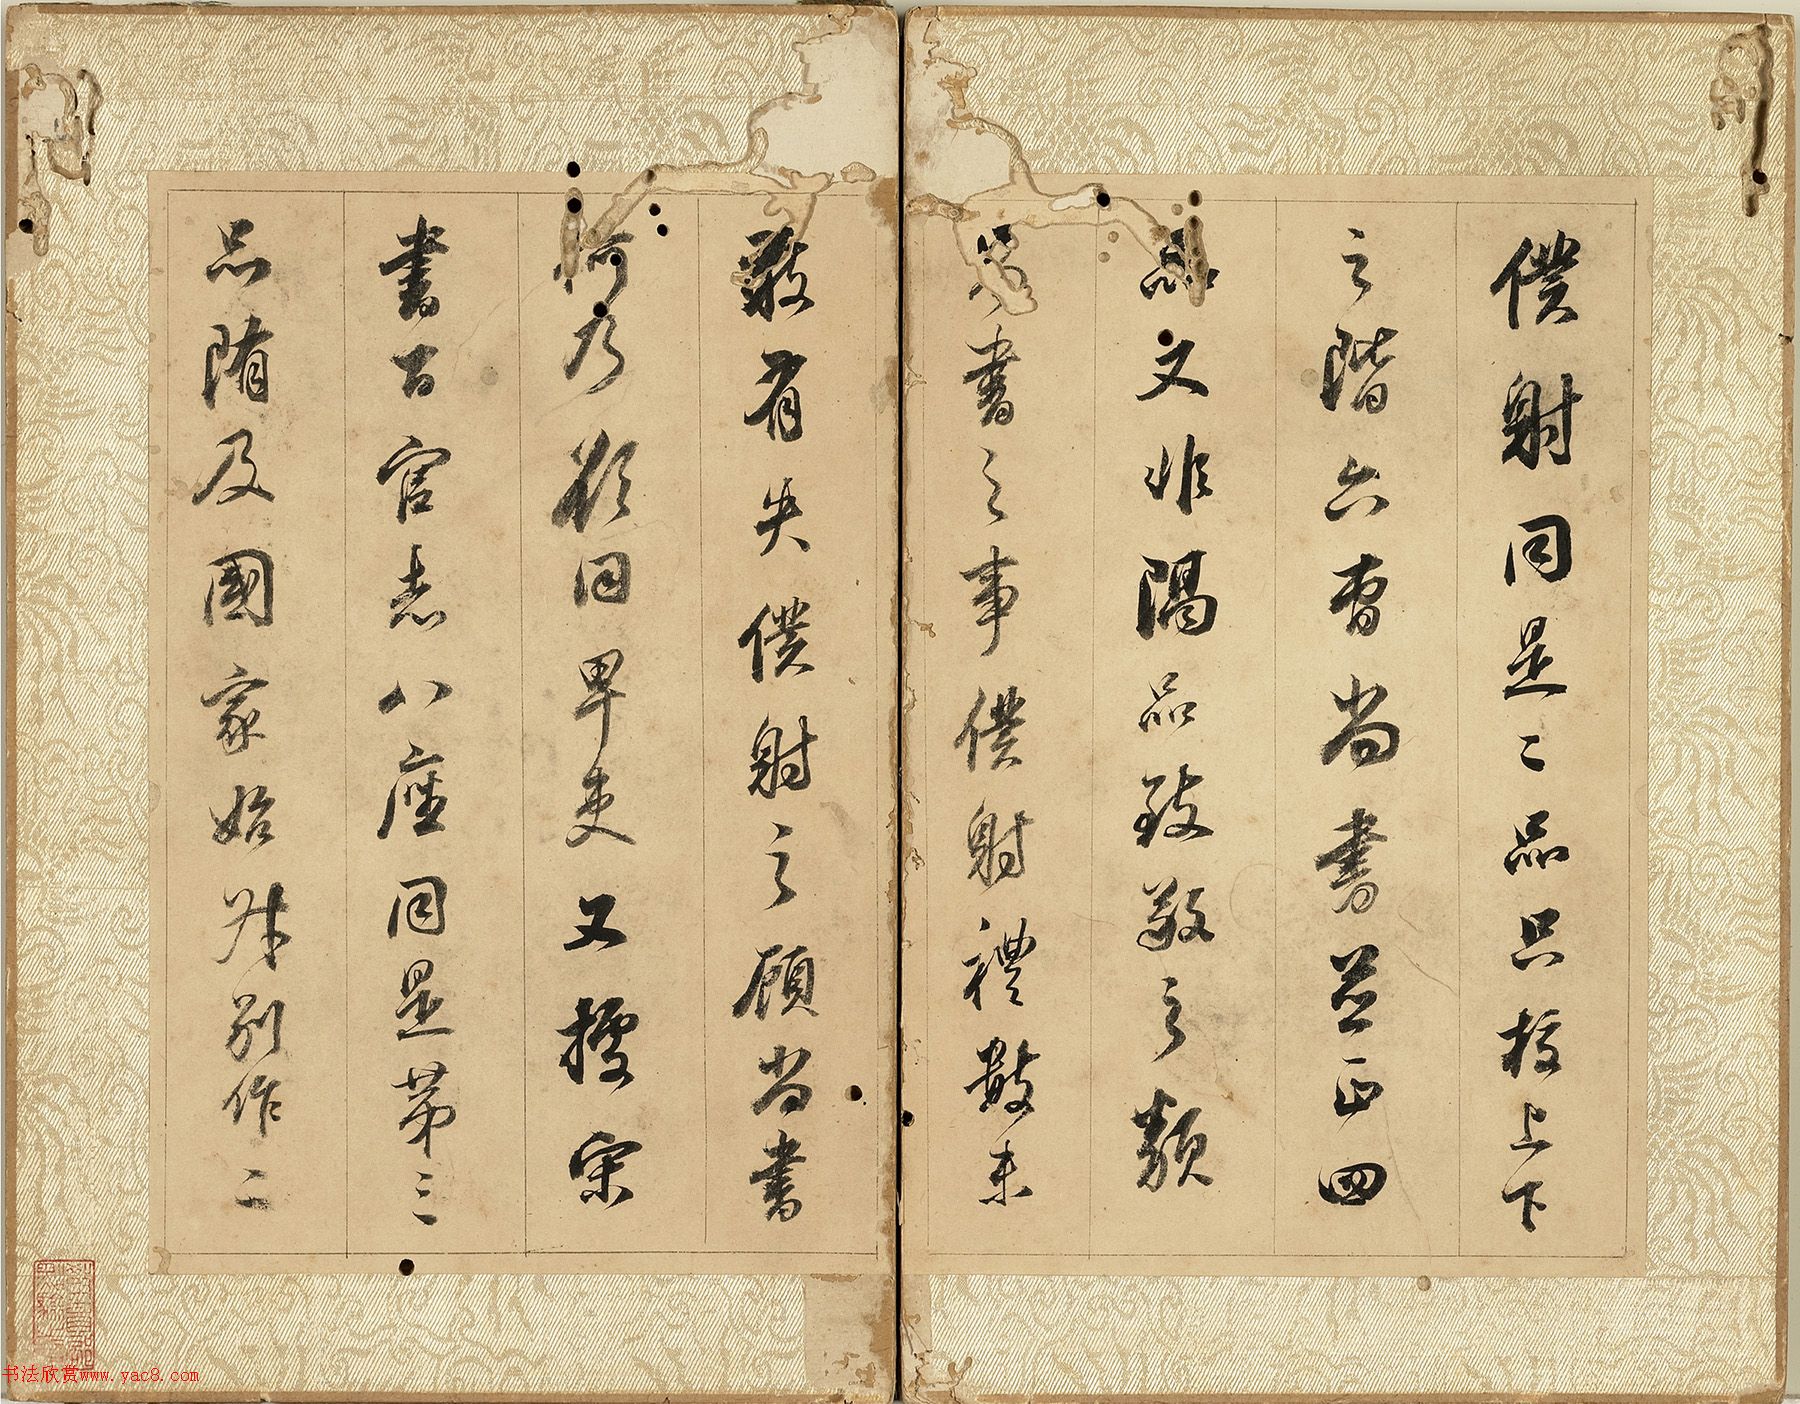 僕射同是二品只校上下
之階六曹尚書並正四
品又非隔品致敬之類
書之事僕射禮數未
敢有失僕射之顧尚書
何乃欲同卑吏又據宋
書百官志八座同是第三
品隋及國家始升別作二
书法欣赏www.yac8.com